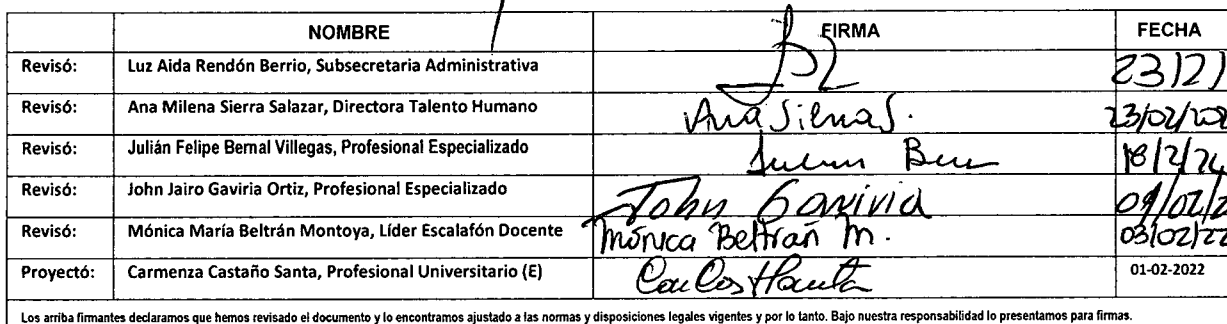 NOMBRE FIRMA FECHA
Revisó: Luz Aida Rendón Berrio, Subsecretaria Administrativa
Revisó: Ana Milena Sierra Salazar, Directora Talento Humano 23/02/
Revisó: Julián Felipe Bernal Villegas, Profesional Especializado 18/2/
Revisó: John Jairo Gaviria Ortiz, Profesional Especializado John Gaviria
Revisó: Mónica María Beltrán Montoya, Líder Escalafón Docente Mónica Beltrán M. 03/02/22
Proyectó: Carmenza Castaño Santa, Profesional Universitario (E) 01-02-2022
Los arriba firmantes declaramos que hemos revisado el documento y lo encontramos ajustado a las normas y disposiciones legales vigentes y por lo tanto. Bajo nuestra responsabilidad lo presentamos para firmas.